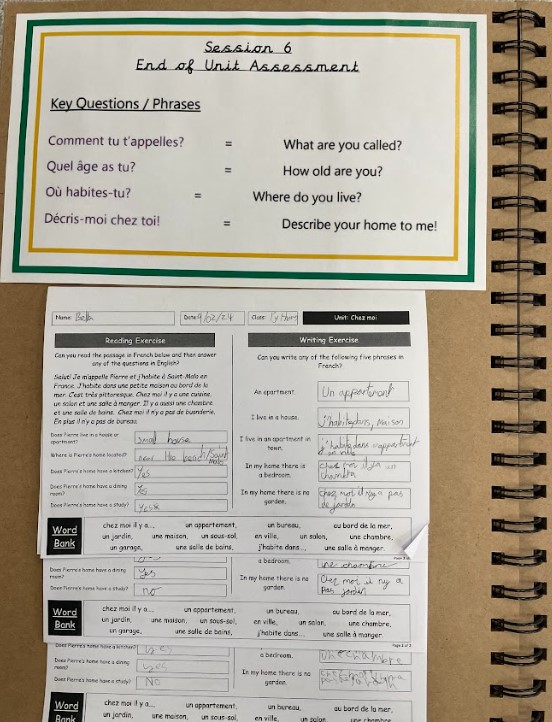 Session 6
End of Unit Assessment
Key Questions / Phrases
Comment tu t'appelles? = What are you called?
Quel âge as tu? = How old are you?
Où habites-tu? = Where do you live?
Décris-moi chez toi! = Describe your home to me!
Name: Bella Date: 9/02/24 Class: Unit: Chez moi
Reading Exercise
Can you read the passage in French below and then answer
any of the questions in English?
Salut! Je m'appelle Pierre et j'habite à Saint-Malo en
France. J'habite dans une petite maison au bord de la
mer. C'est très pittoresque. Chez moi il y a une cuisine,
un salon et une salle à manger. Il y a aussi une chambre
et une salle de bains. Chez moi il n'y a pas de buanderie.
En plus il n'y a pas de bureau.
Does Pierre live in a house or
apartment? small house
Where is Pierre's home located? near the beach/Saint
Malo
Does Pierre's home have a kitchen? Yes
Does Pierre's home have a dining
room? Yes
Does Pierre's home have a study?
Writing Exercise
Can you write any of the following five phrases in
French?
An apartment. Un appartment
I live in a house. J'habite dans, maison
I live in an apartment in
town. j'habite dans
In my home there is
a bedroom.
In my home there is no
garden. chez moi il n'y a pas
de jardin
Word
Bank
chez moi il y a... un appartement, un bureau, au bord de la mer,
un jardin, une maison, un sous-sol, en ville, un salon, une chambre,
un garage, une salle de bains, j'habite dans... une salle à manger.
Does Pierre's home have a dining
room? Yes
Does Pierre's home have a study? no
a bedroom. une chambre
In my home there is no
garden. Chez moi il ny a
pas jardin
Word
Bank
chez moi il y a... un appartement, un bureau, au bord de la mer,
un jardin, une maison, un sous-sol, en ville, un salon, une chambre,
un garage, une salle de bains, j'habite dans... une salle à manger.
Page 2 of 2
Does Pierre's home have a kitchen? yes
Does Pierre's home have a dining
room? yes
Does Pierre's home have a study? No
a bedroom.
In my home there is no
garden.
Word
Bank
chez moi il y a... un appartement, un bureau, au bord de la mer,
un jardin, une maison, un sous-sol, en ville, un salon, une chambre,